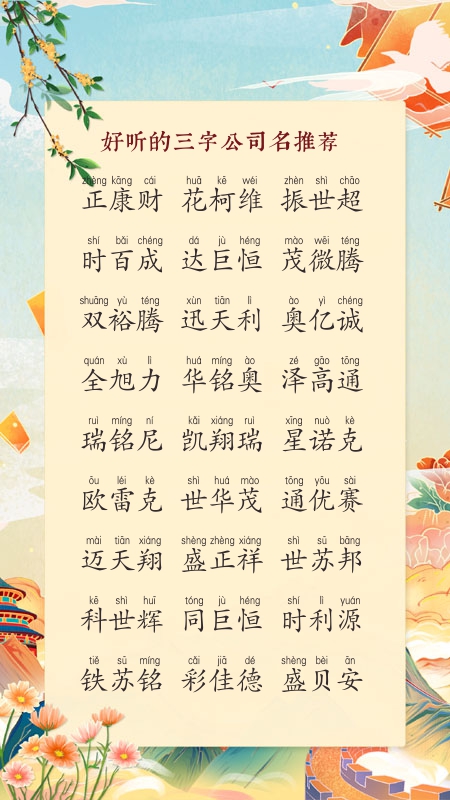 好听的三字公司名推荐
zhèng kāng cái huā kē wéi zhèn shì chāo
正康财 花柯维 振世超
shí bǎi chéng dá jù héng mào wēi téng
时百成 达巨恒 茂微腾
shuāng yù téng xùn tiān lì ào yì chéng
双裕腾 迅天利 奥亿诚
quán xù lì huá míng ào zé gāo tōng
全旭力 华铭奥 泽高通
ruì míng ní kǎi xiáng ruì xīng nuò kè
瑞铭尼 凯翔瑞 星诺克
ōu léi kè shì huá mào tōng yōu sài
欧雷克 世华茂 通优赛
mài tiān xiáng shèng zhèng xiáng shì sū bāng
迈天翔 盛正祥 世苏邦
kē shì huī tóng jù héng shí lì yuán
科世辉 同巨恒 时利源
tiě sū míng cǎi jiā dé shèng bèi ān
铁苏铭 彩佳德 盛贝安